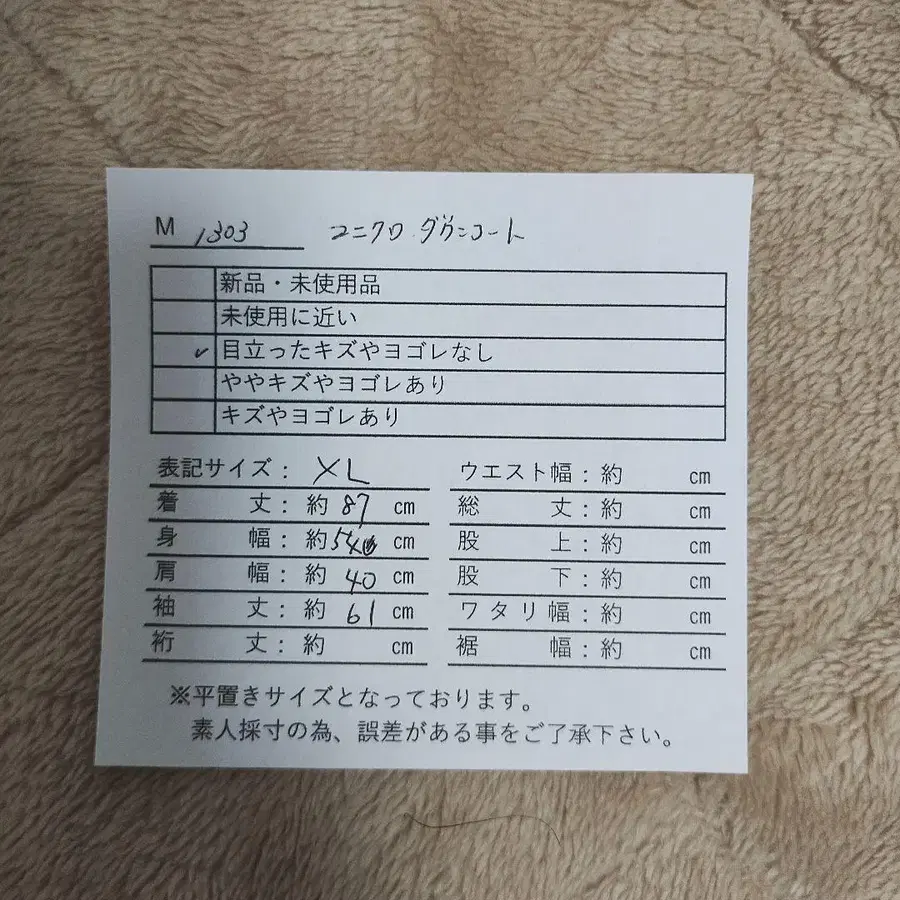 M 1303 ユニクロ ダウンコート
新品・未使用品
未使用に近い
✓ 目立ったキズやヨゴレなし
ややキズやヨゴレあり
キズやヨゴレあり
表記サイズ: XL
着丈: 約 87 cm
身幅: 約 54 cm
肩幅: 約 40 cm
袖丈: 約 61 cm
裄丈: 約 cm
ウエスト幅: 約 cm
総丈: 約 cm
股上: 約 cm
股下: 約 cm
ワタリ幅: 約 cm
裾幅: 約 cm
※平置きサイズとなっております。
素人採寸の為、誤差がある事をご了承下さい。